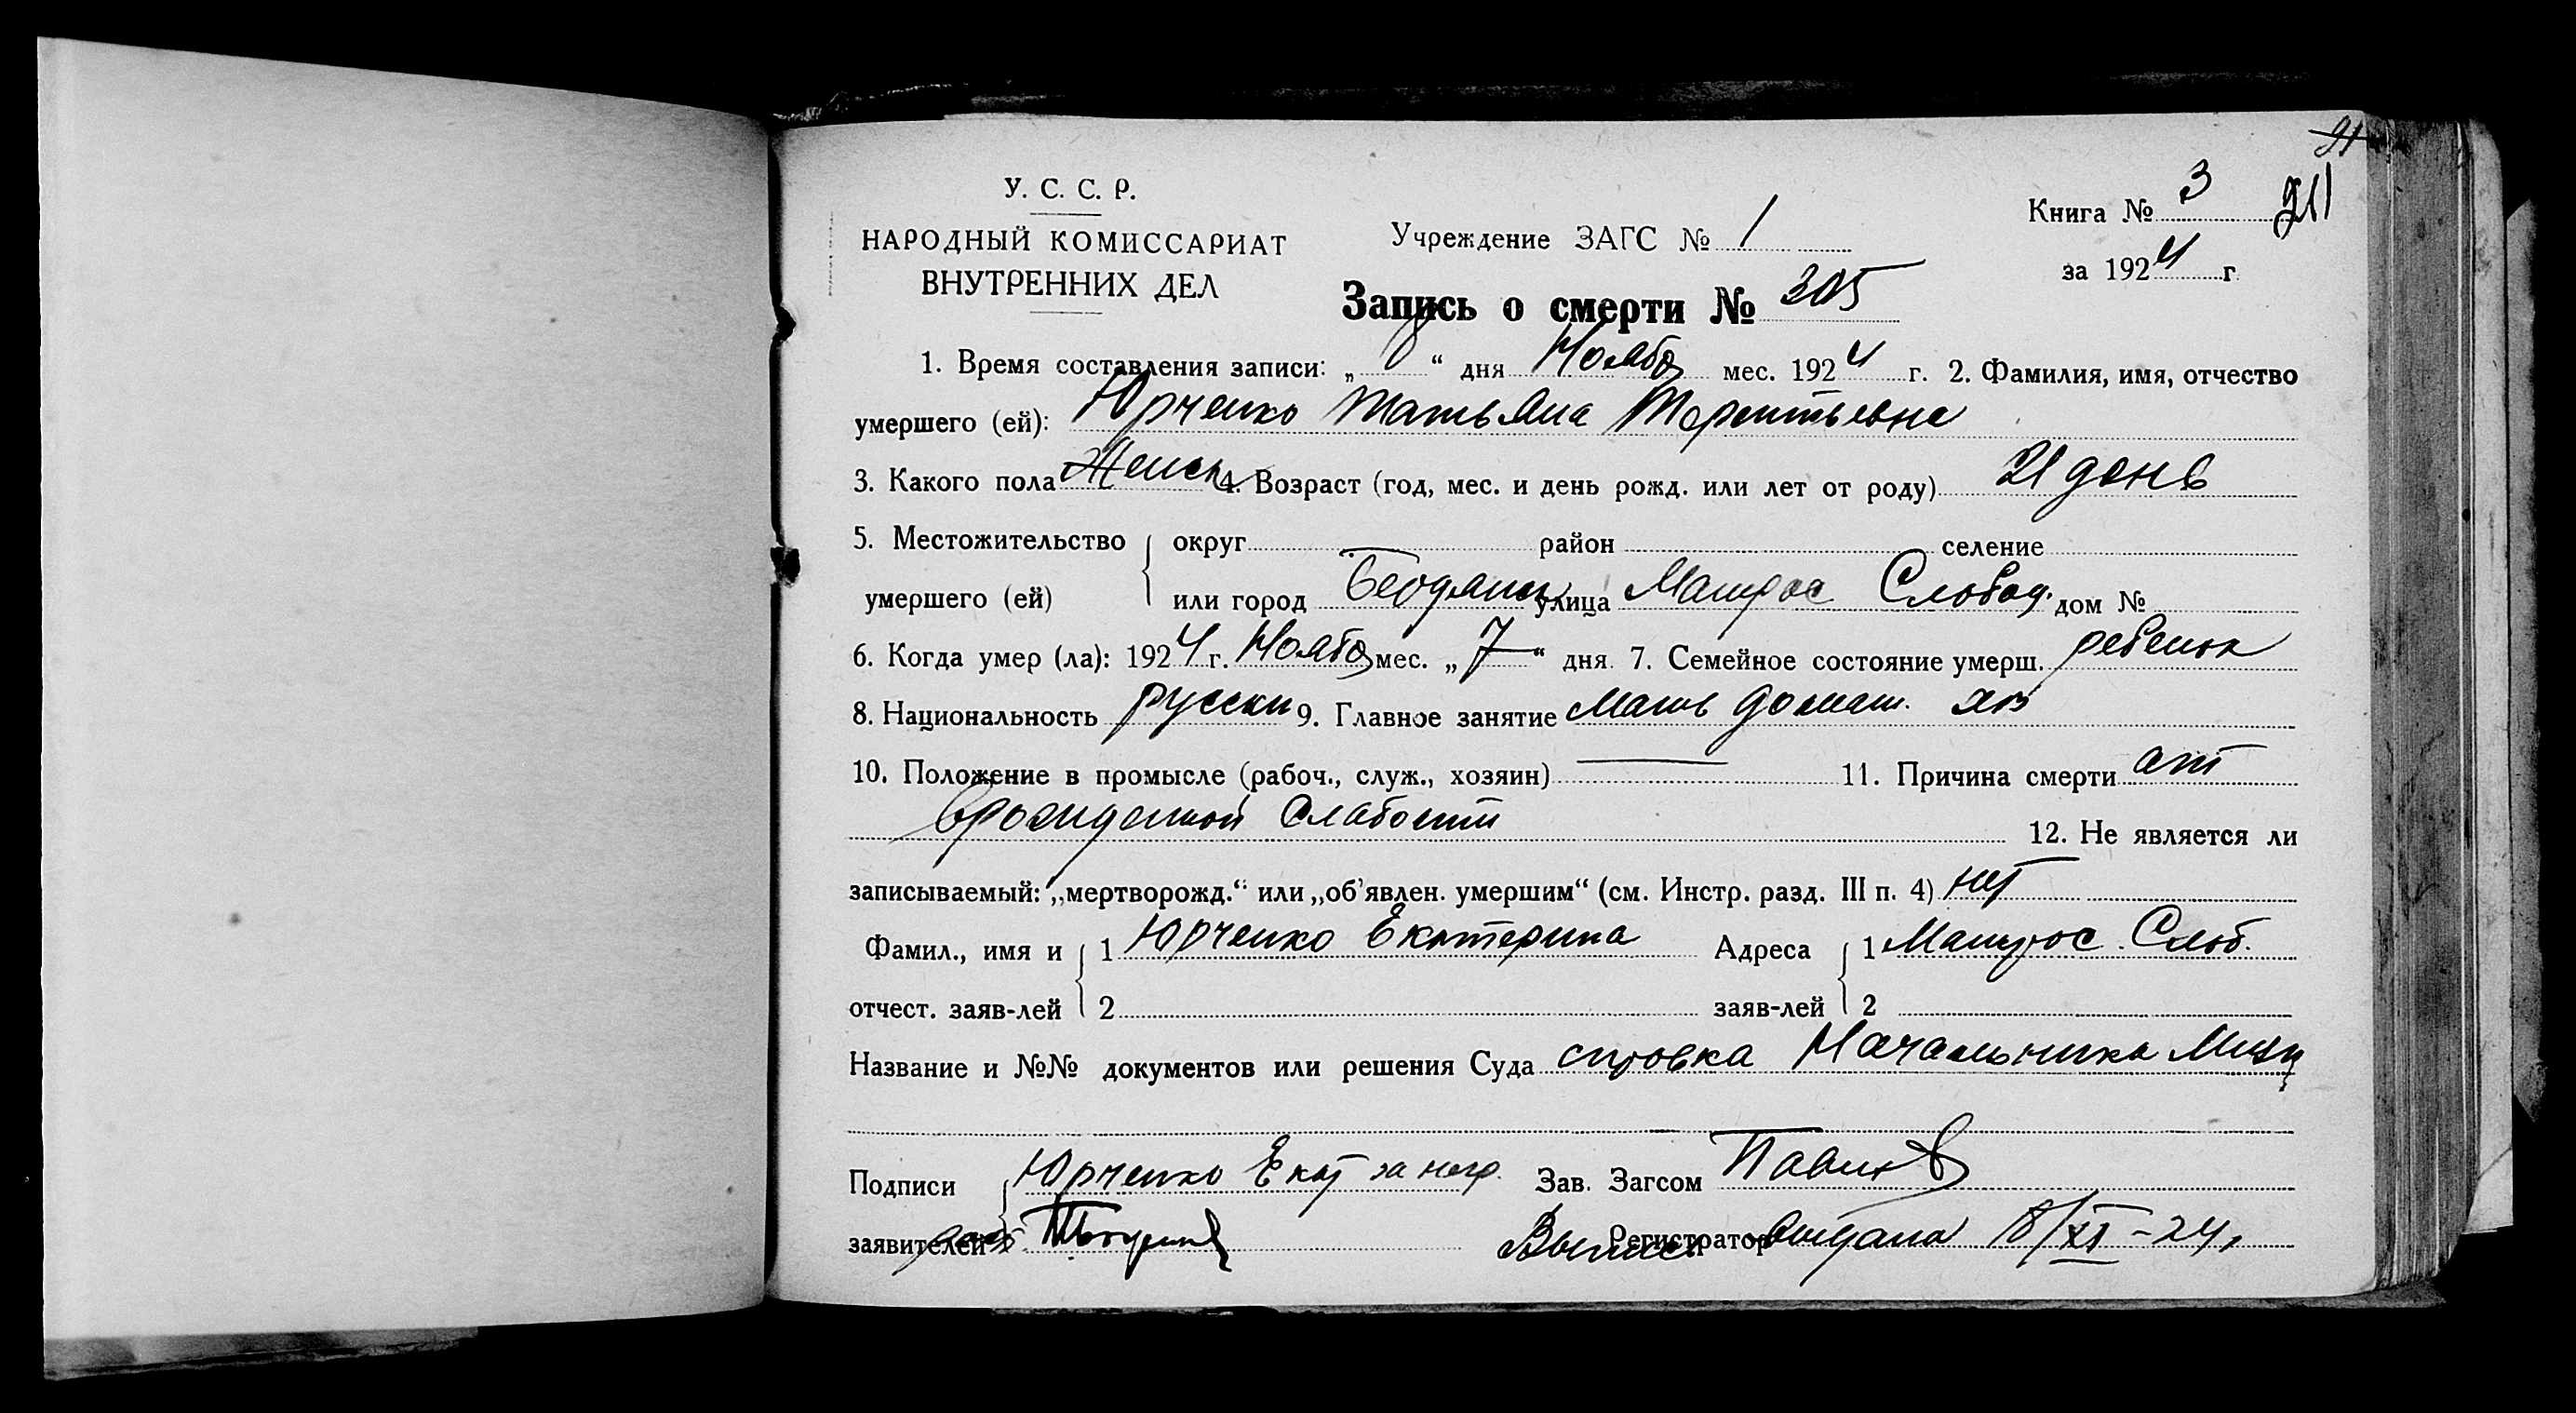 91
У. С. С. Р.
НАРОДНЫЙ КОМИССАРИАТ
ВНУТРЕННИХ ДЕЛ
Учреждение ЗАГС № 1
Книга № 3
за 1924 г.
Запись о смерти № 305
1. Время составления записи: „8“ дня Ноябр мес. 1924 г. 2. Фамилия, имя, отчество
умершего (ей): Юрченко Татьяна Терентьевна
3. Какого пола Женск 4. Возраст (год, мес. и день рожд. или лет от роду) 21 день
5. Местожительство округ район селение
умершего (ей) или город Бердянск улица Матрос Слобод. дом №
6. Когда умер (ла): 1924 г. Ноябр мес. „7“ дня. 7. Семейное состояние умерш. ребенок
8. Национальность русски 9. Главное занятие мать домаш. хоз
10. Положение в промысле (рабоч., служ., хозяин) — 11. Причина смерти от
врожденной слабости
12. Не является ли
записываемый: „мертворожд.“ или „об'явлен. умершим“ (см. Инстр. разд. III п. 4) нет
Фамил., имя и 1 Юрченко Екатерина Адреса 1 Матрос. Слоб.
отчест. заяв-лей 2 заяв-лей 2
Название и №№ документов или решения Суда справка Начальника Милиц
Подписи Юрченко Екат за негр. Зав. Загсом
заявителей Регистратор Выпись выдана 8/XI-24,